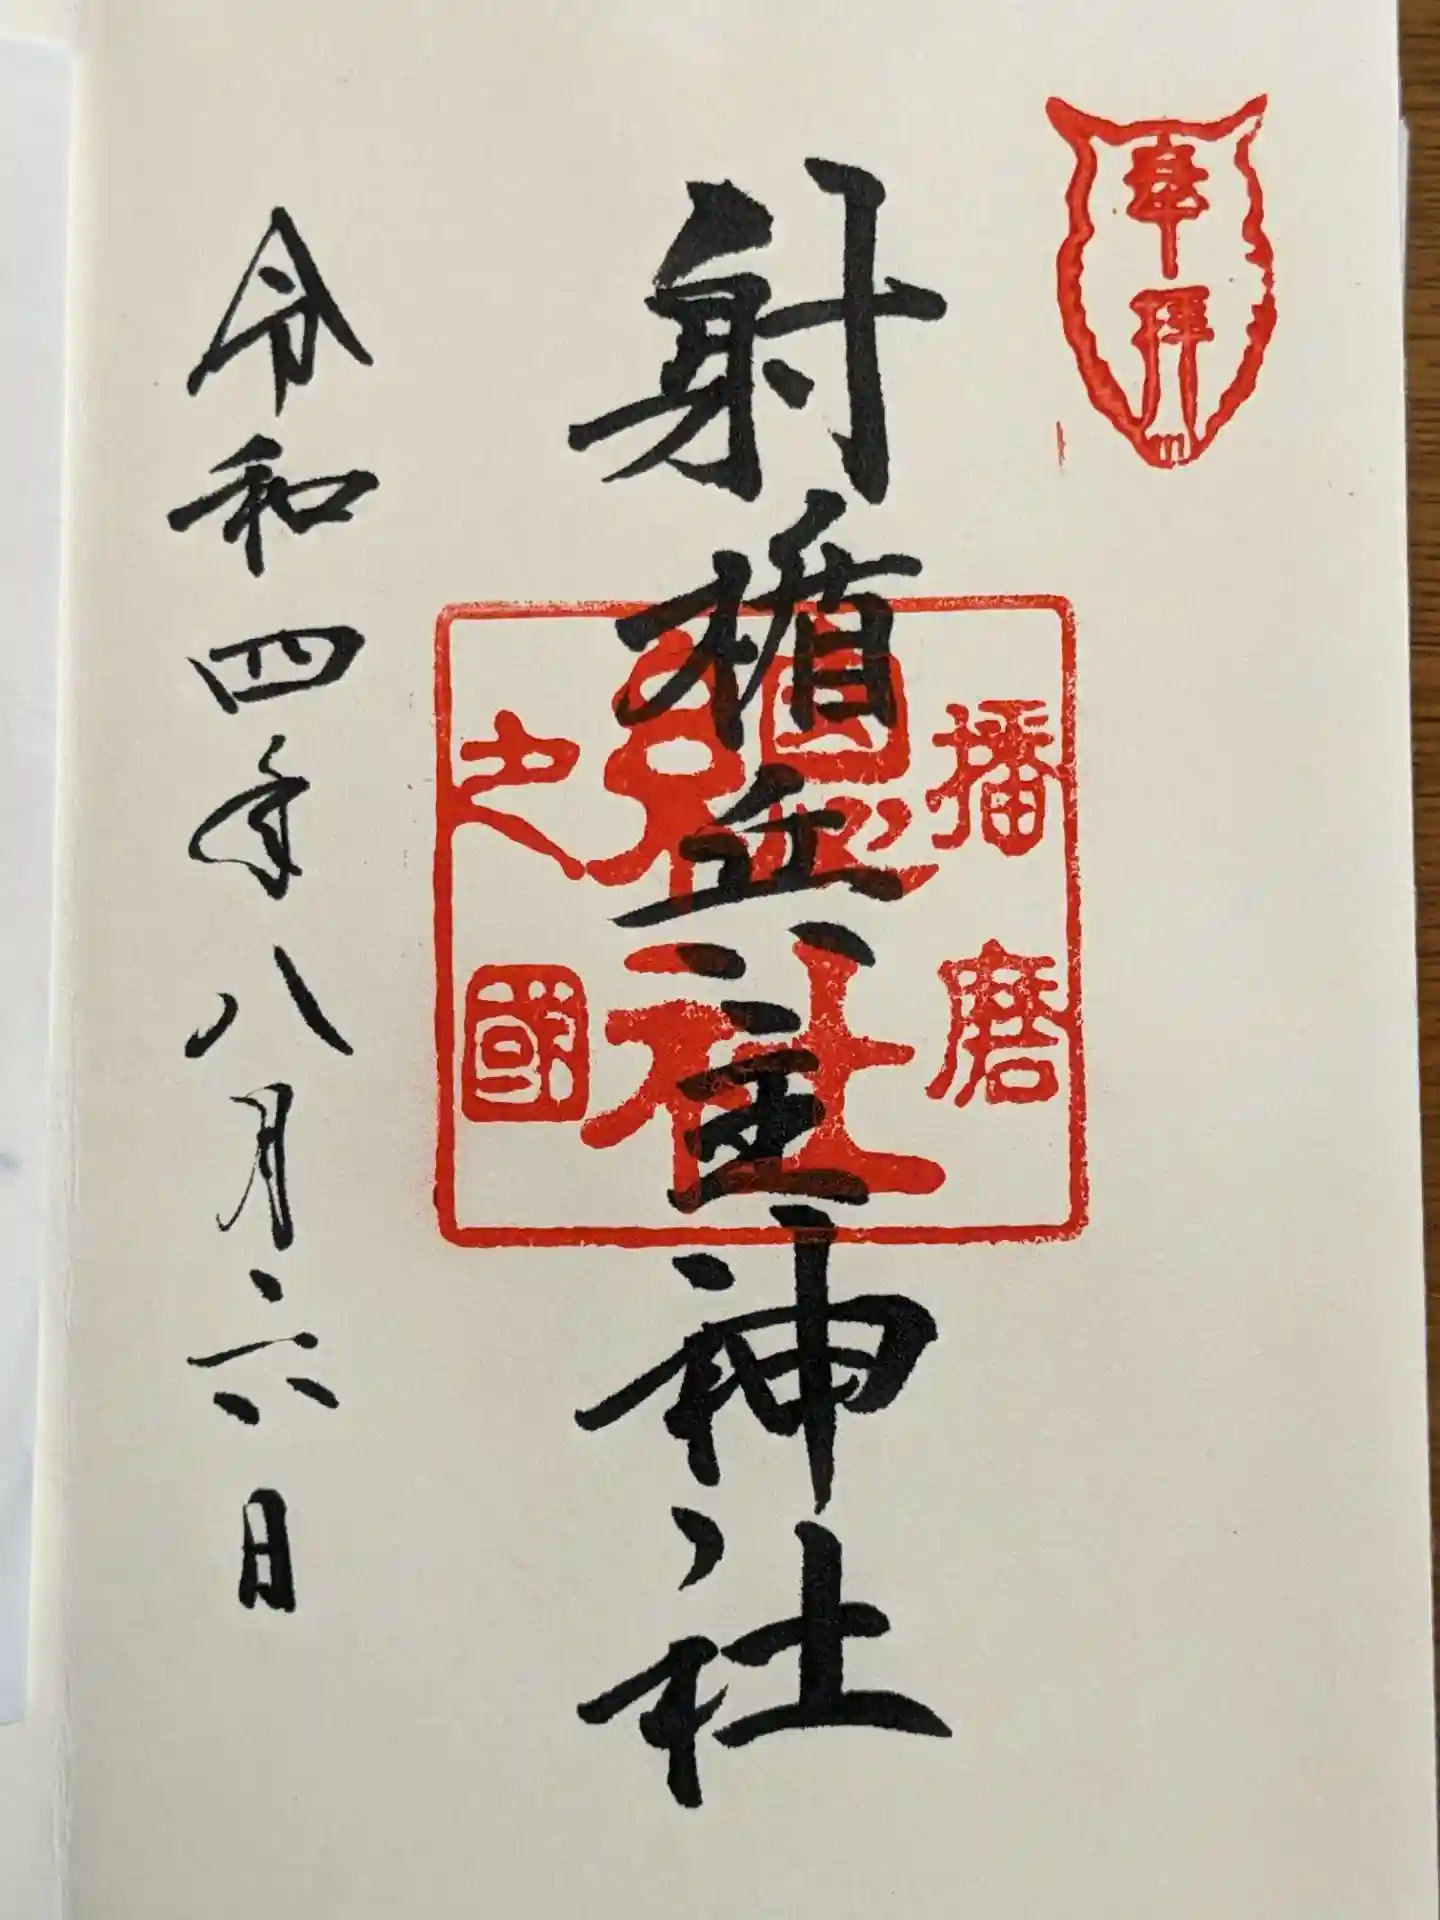 奉拝
射楯兵主神社
播磨
国総社
之國
令和四年八月六日